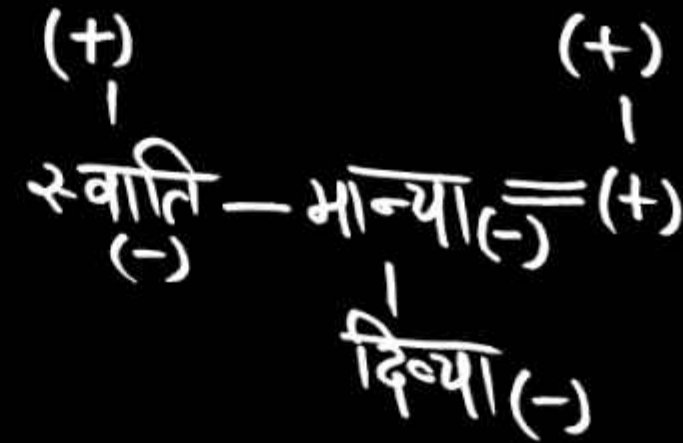 (+) (+)
स्वाति — मान्या (-) = (+)
(-)
दिव्या (-)